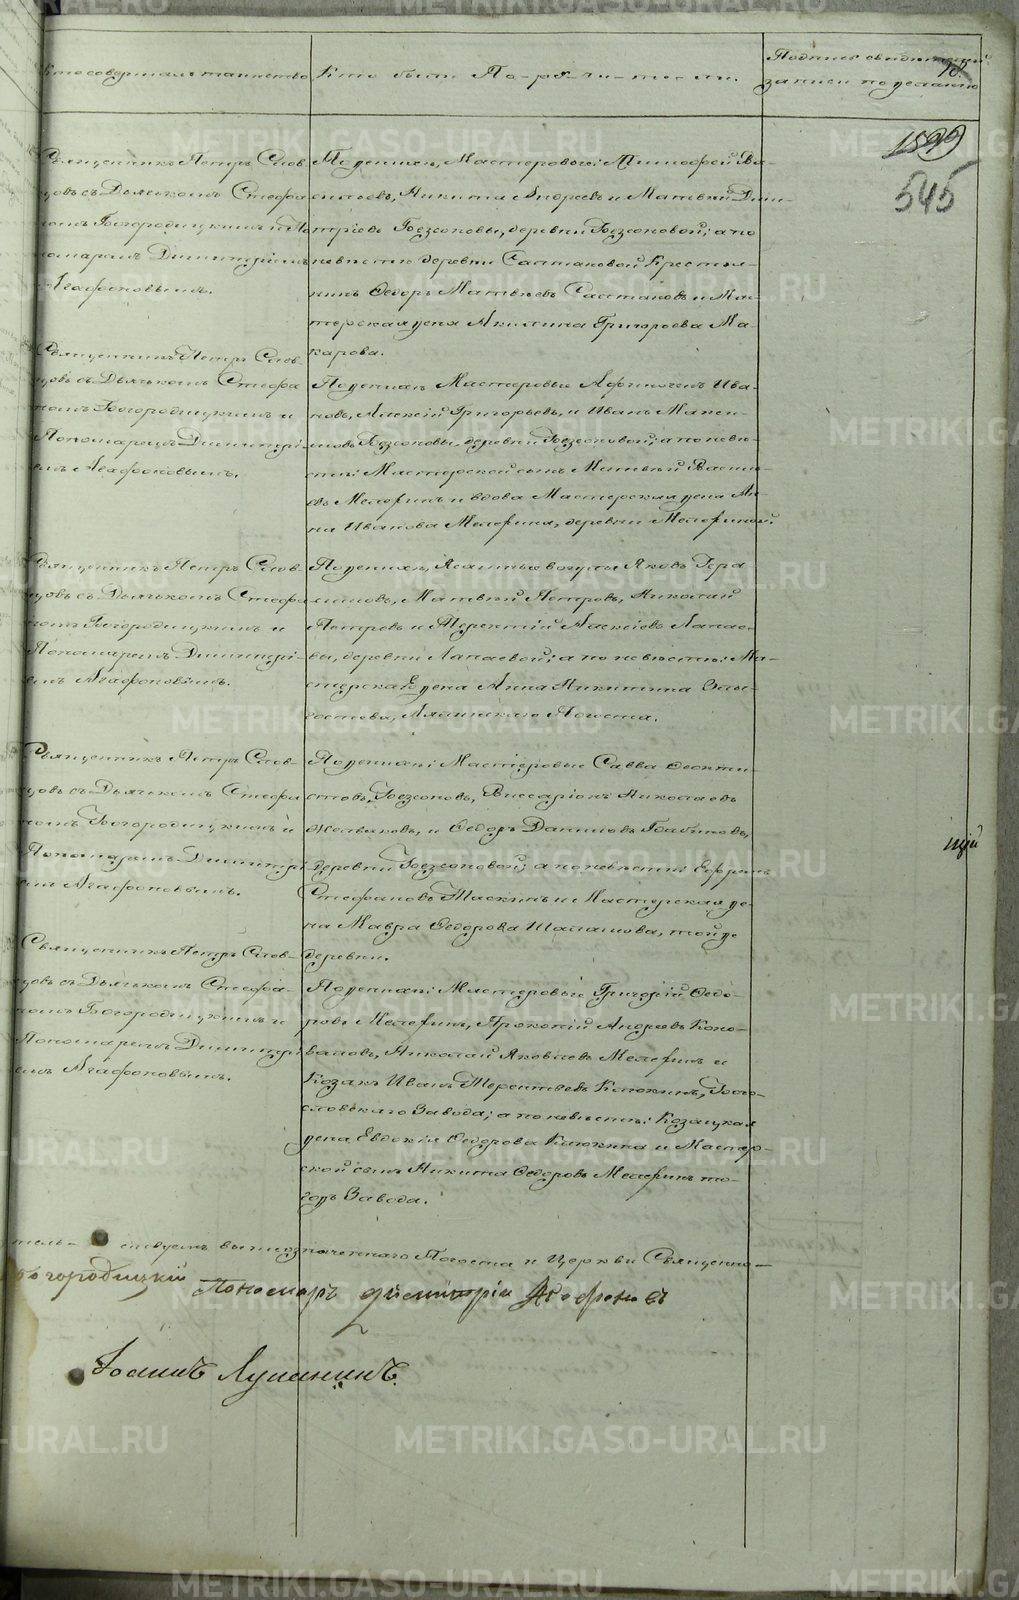 Кто совершалъ таинство
Кто были По-ру-чи-те-ли.
Подпись свидетелей
записи по желанію
1599
545
Священникъ Петръ Слов-
цовъ съ Дьячкомъ Стефа
номъ Богородицкимъ и По
номаремъ Димитріемъ
Агафоновымъ.
По женихѣ, Мастеровые: Тимофей Ва-
сильевъ, Никита Андреевъ и Матвей Дми-
тріевъ Безсоновы, деревни Безсоновой; а по
невѣстѣ деревни Салтановой Крестья-
нинъ Ѳедоръ Матвѣевъ Салтановъ и Мас-
терская жена Акилина Григорьева Ма-
карова.
Священникъ Петръ Слов-
цовъ съ Дьячкомъ Стефа
номъ Богородицкимъ и
Пономаремъ Димитрі-
емъ Агафоновымъ.
По женихѣ Мастеровые Ива-
новъ, Алексій Григорьевъ, и Иванъ Макси-
мовъ Безсоновы, деревни Безсоновой; а по невѣ-
стѣ: Мастерской сынъ Матвѣй Василь-
евъ Мелехинъ и вдова Мастерская жена Ан-
на Иванова Мелехина, деревни Мелехиной.
Священникъ Петръ Слов-
цовъ съ Дьячкомъ Стефа
номъ Богородицкимъ и
Пономаремъ Димитрі-
емъ Агафоновымъ.
По женихѣ, Ясашные вогулы Яковъ Гера
симовъ, Матвѣй Петровъ, Николай
Петровъ и Терентій Алексіевъ Лапае-
вы, деревни Лапаевой; а по невѣстѣ: Ма-
стерская жена Анна Никитина
Лялинскаго Погоста.
Священникъ Петръ Слов-
цовъ съ Дьячкомъ Стефа
номъ Богородицкимъ и
Пономаремъ Димитрі
емъ Агафоновымъ.
По женихѣ: Мастеровые Савва Ѳеокти-
стовъ Безсоновъ, Виссаріонъ Николаевъ
и Ѳедоръ Даниловъ
деревни Безсоновой; а по невѣстѣ: Ефремъ
Стефановъ Таскинъ и Мастерская же-
на Мавра Ѳедорова Шапшова, той же
деревни.
Священникъ Петръ Слов-
цовъ съ Дьячкомъ Стефа-
номъ Богородицкимъ и
Пономаремъ Димитрі
емъ Агафоновымъ.
По женихѣ: Мастеровые Григорій Ѳедо-
ровъ Мелехинъ, Прокопій Андреевъ Коно-
валовъ, Николай Яковлевъ Мелехинъ и
Козакъ Иванъ Терентьевъ Клюкинъ, Бого-
словскаго Завода; а по невѣстѣ: Козацкая
жена Евдокія Ѳедорова Клюкина и Мастер-
ской сынъ Никита Ѳедоровъ Мелехинъ то-
гожъ Завода.
тель- ствуемъ вышеозначеннаго Погоста и Церкви Священно-
Богородицкій
Пономарь Димитрій Агафоновъ
Іоаннъ Лупанинъ.
METRIKI.GASO-URAL.RU